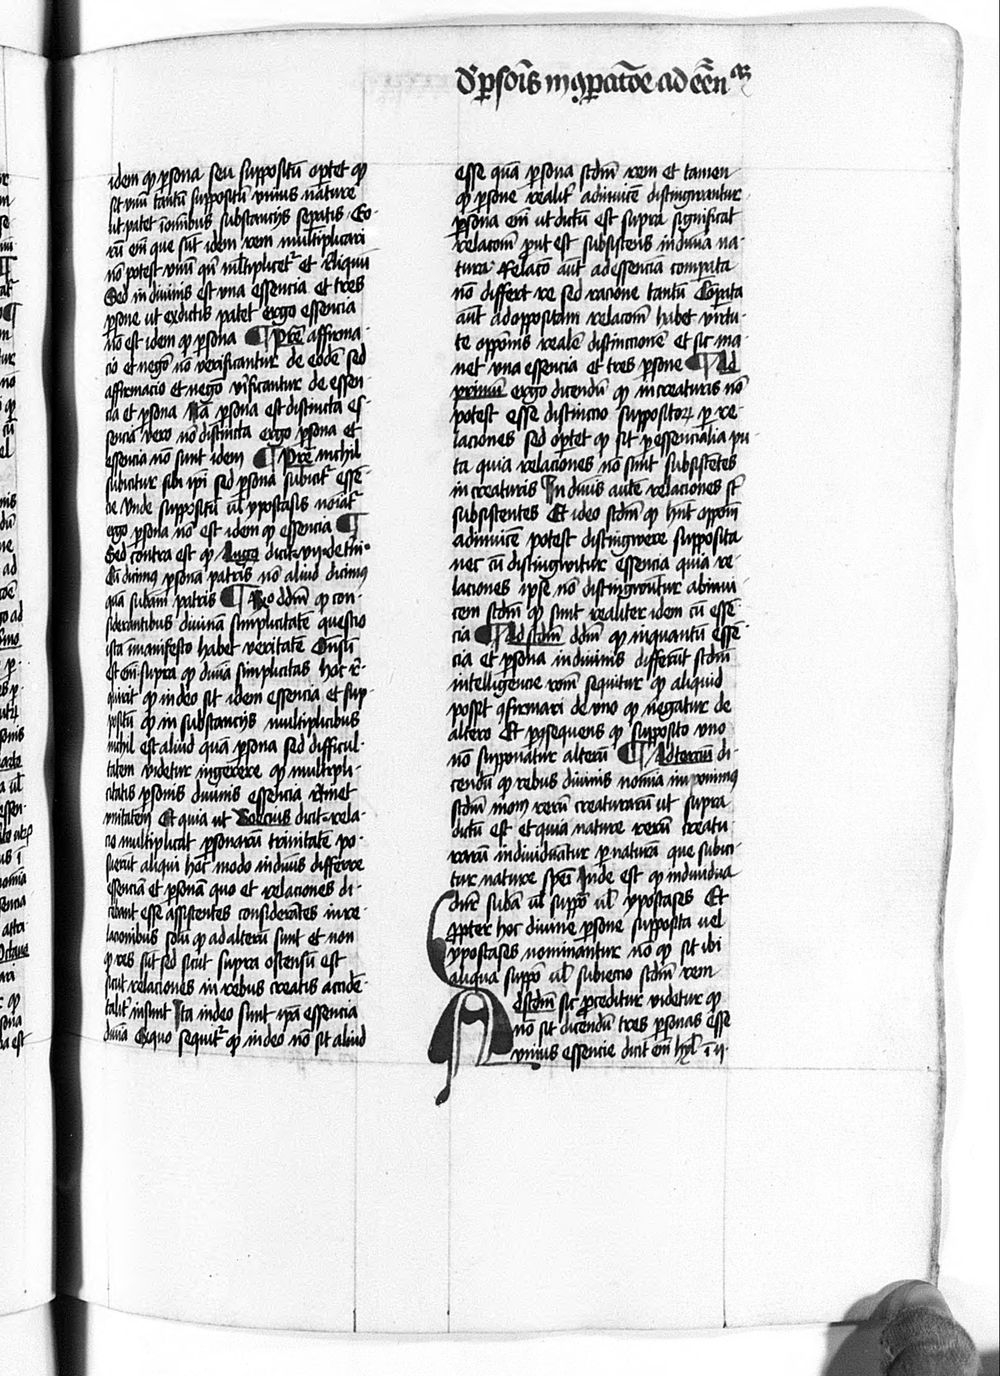 d' p̲sōis in 9p̲atōe ad eēn
idem qꝫ p̲sona seu suppositū op̲tet qꝫ
sit vnū tantū suppositū vnius nature
ut patet ī omnibus substancijs sep̲atis Eo
rū em̄ que sūt idem rem multiplicari
nō potest vnū qn̄ ml̄tiplicet᷑ et reliquū
Sed in diuinis est vna essencia et tres
p̲sone ut ex dictis patet ergo essencia
nō est idem qꝫ p̲sona ¶ Pret̄ affirma
cio et negō nō verificantur de eodē sed
affirmacio et negō v̄ificantur de essen
cia et p̲sona Nā p̲sona est distincta es
sencia vero nō distincta ergo p̲sona et
essencia nō sunt idem ¶ Pret̄ nichil
subicitur sibi ip̄i sed p̲sona subicit᷑ essē
cie Vnde suppositū ul̄ ypostasis noīat᷑
ergo p̲sona nō est idem qꝫ essencia ¶
Sed contra est qꝫ Augꝰ dicit vij de t'ni
Cū dicimꝰ p̲sonā patris nō aliud dicimꝰ
quā sūbam patris ¶ Rn̄o dd̄m qꝫ con
siderantibus diuinā simplicitatē questio
ista īmanifesto habet veritatē On̄sū
est em̄ supra qꝫ diuīa simplicitas hoc re
quirit qꝫ in deo sit idem essencia et sup
positū qꝫ in substancijs multiplicibus
nichil est aliud quā p̲sona sed difficul
tatem videtur ingerere qꝫ multipli
citatis p̲sonis diuinis essencia retinet
vnitatem Et quia ut Boecius dicit rela
cio multiplicat p̲sonarū trinitatē po
suerūt aliqui hoc modo in diuīs differre
essenciā et p̲sonā quo et relaciones di
cebant esse assistentes considerātes in re
lacionibus solū qꝫ ad alterū sunt et non
qꝫ res sūt sed sicut supra ostensū est
sicut relaciones in rebus creatis accidē
talit᷑ insunt Ita in deo sunt ip̄a essencia
diuīa Ex quo sequit᷑ qꝫ in deo nō sit aliud
esse quā p̲sona scd̄m rem et tamen
qꝫ p̲sone realit᷑ adinuicē distingwantur
p̲sona em̄ ut dictū est supra significat
relacōm put est subsistens in diuīa na
tura Relacō aūt ad essenciā compata
nō differt re sed racione tantū Copata
aūt ad oppositam relacōm habet virtu
te oppōnis realē distinctionē et sic ma
net vna essencia et tres p̲sone ¶ Ad
primū ergo dicendū qꝫ in creaturis nō
potest esse distinctio suppositoꝝ p̲ re
laciones sed op̲tet qꝫ sit p̲ essencialia pn̄
cipia quia relaciones nō sunt subsistētes
in creaturis In diuīs autē relaciones sūt
subsistentes Et ideo scd̄m qꝫ hn̄t oppōm
adinuicē potest distingwere supposita
nec tn̄ distingwitur essencia quia re
laciones ipse nō distingwūtur abinui
cem scd̄m qꝫ sunt realiter idem cū essē
cia ¶ Ad scd̄m dd̄m qꝫ inquantū essē
cia et p̲sona in diuinis differūt scd̄m
intelligencie rōm sequitur qꝫ aliquid
possit 9firmari de vno qꝫ negatur de
altero Et p̲ 9sequens qꝫ supposito vno
nō supponatur alterū ¶ Ad terciū di
cendū qꝫ rebus diuinis nomīa imponimꝰ
scd̄m modū rerū creaturarū ut supra
dictū est et quia nature rerū creatu
rarū indiuiduātur p̲ naturā que subici
tur nature sp̄ei Inde est qꝫ indiuidua
dn̄r subīa ul̄ suppō ul̄ ypostases Et
ꝓpter hoc diuine p̲sone supposita uel
ypostases nominantur nō qꝫ sit ibi
aliqua suppō ul̄ subiectio scd̄m rem
Ad scd̄m sic ꝓceditur videtur qꝫ
nō sit dicendū tres p̲sonas esse
vnius essencie dicit em̄ hyl' ī ij